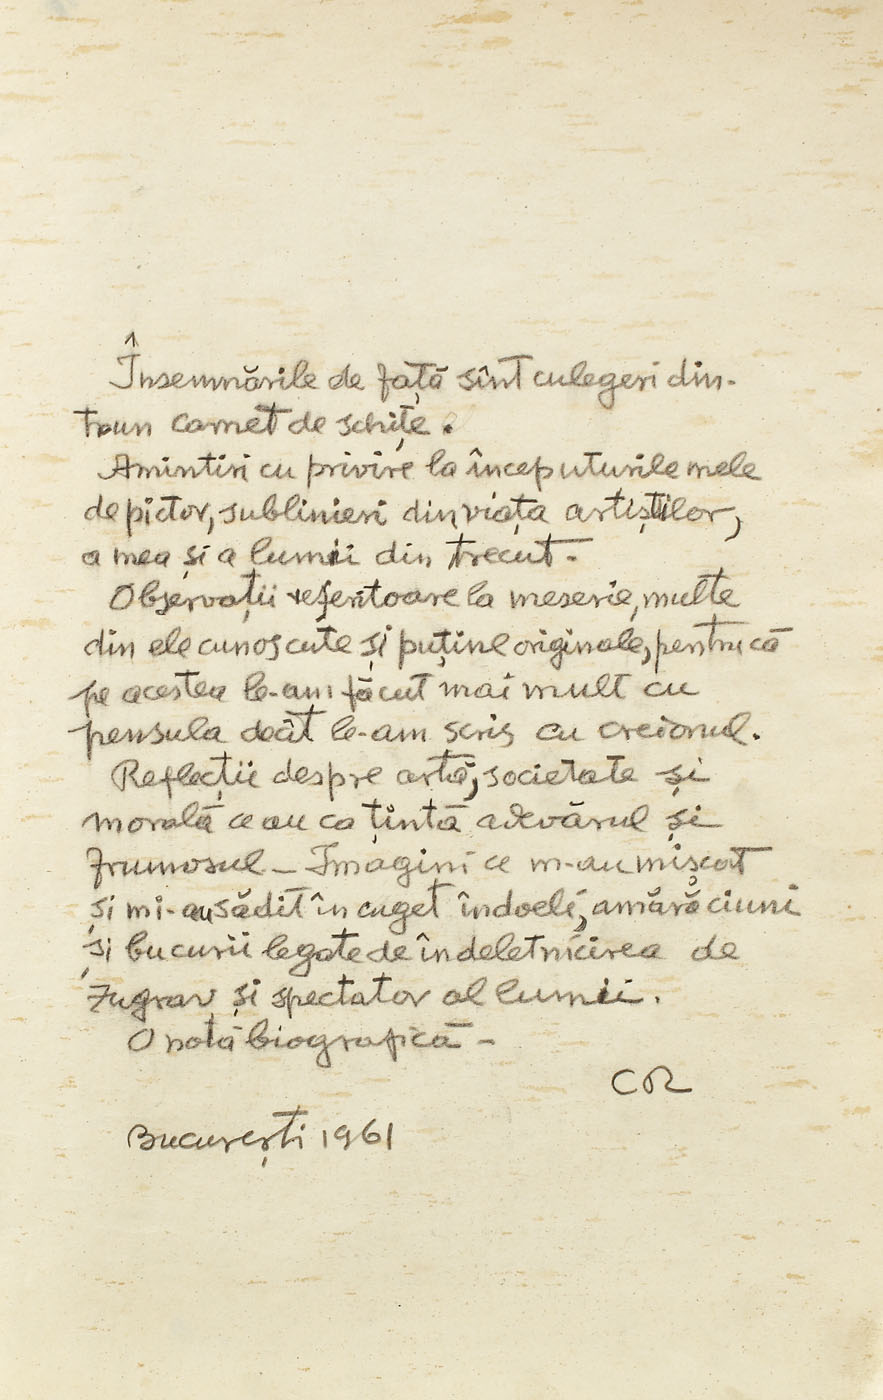 Însemnările de față sînt culegeri din-
trun carnet de schițe.
Amintiri cu privire la începuturile mele
de pictor, sublinieri din viața artiștilor,
a mea și a lumii din trecut.
Observații referitoare la meserie, multe
din ele cunoscute și puține originale, pentru că
pe acestea le-am făcut mai mult cu
pensula decît le-am scris cu creionul.
Reflecții despre artă, societate și
morală ce au ca țintă adevărul și
frumosul – Imagini ce m-au mișcat
și mi-au sădit în cuget îndoeli, amărăciuni
și bucurii legate de îndeletnicirea de
zugrav și spectator al lumii.
O notă biografică –
CR
București 1961